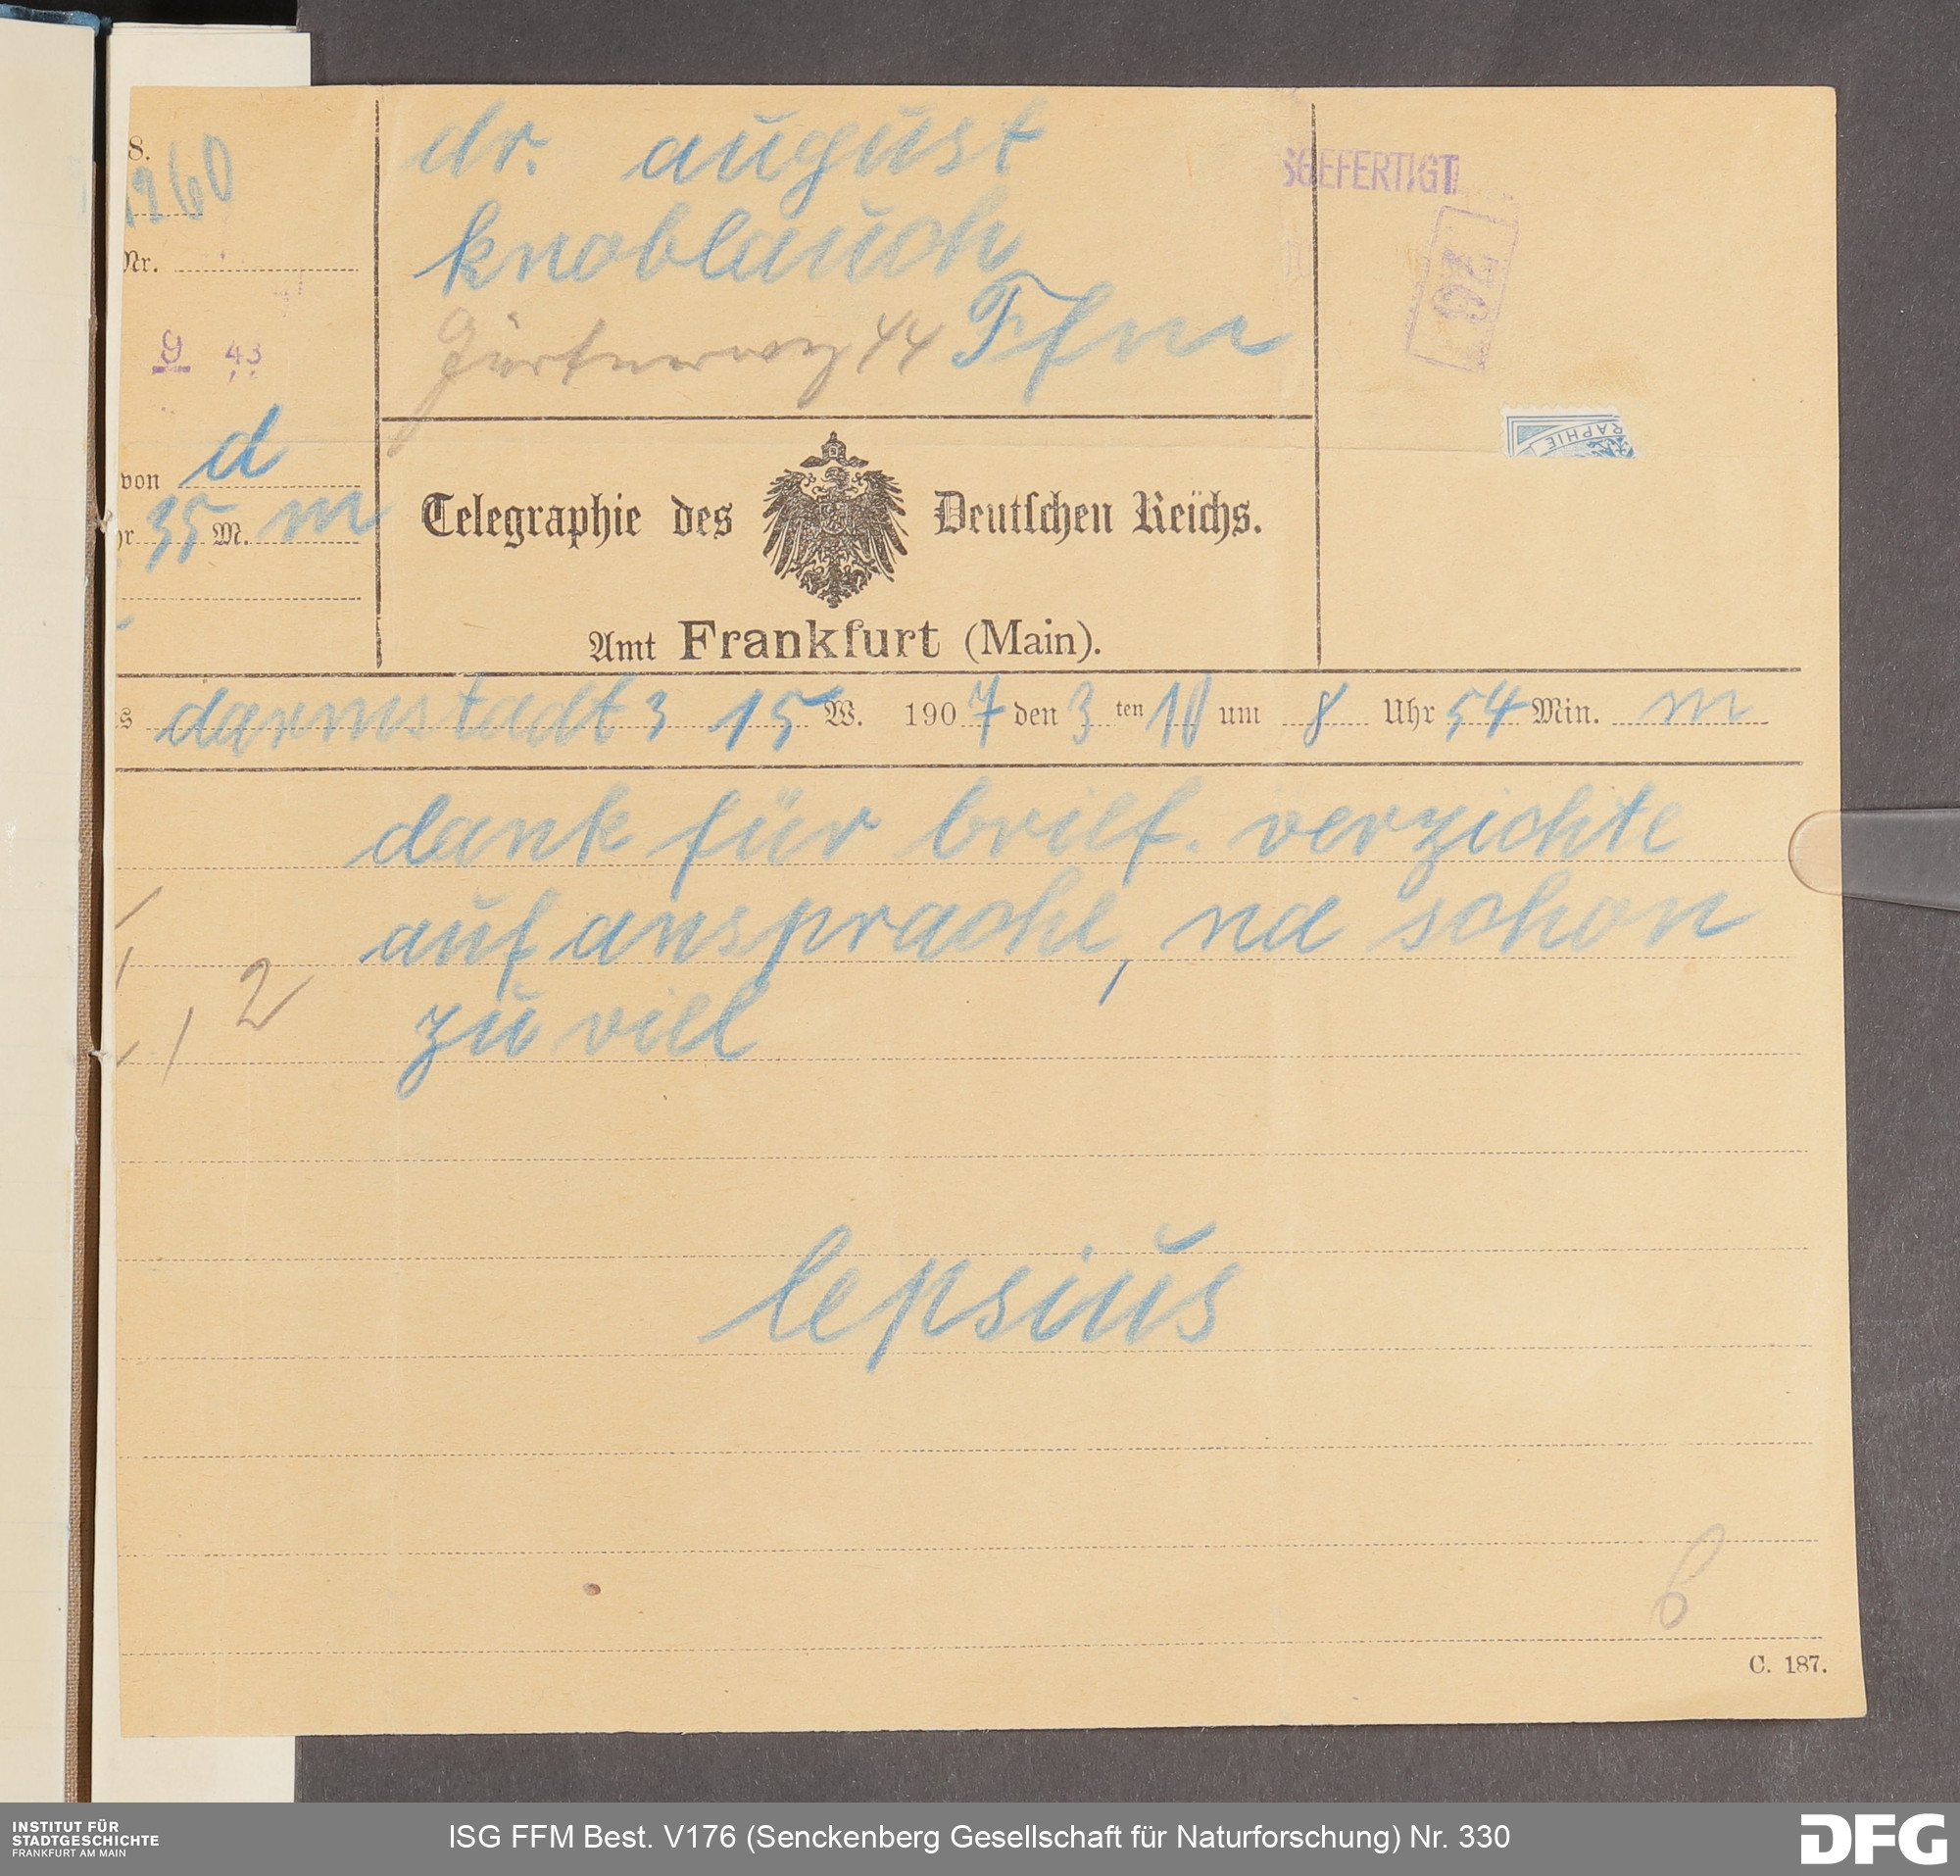 8.
1260
Nr.
9 43
von d
35 M. m
dr. august
knoblauch
Gärtnerweg 44 Ffm
SGEFERTIGT
Telegraphie des Deutschen Reichs.
Amt Frankfurt (Main).
RAPHIE
s darmstadt 3 15 W. 1907 den 3 ten 10 um 8 Uhr 54 Min. m
dank für brief. verzichte
auf ansprache, na schon
2 zu viel
lepsius
C. 187.
INSTITUT FÜR
STADTGESCHICHTE
FRANKFURT AM MAIN
ISG FFM Best. V176 (Senckenberg Gesellschaft für Naturforschung) Nr. 330
DFG